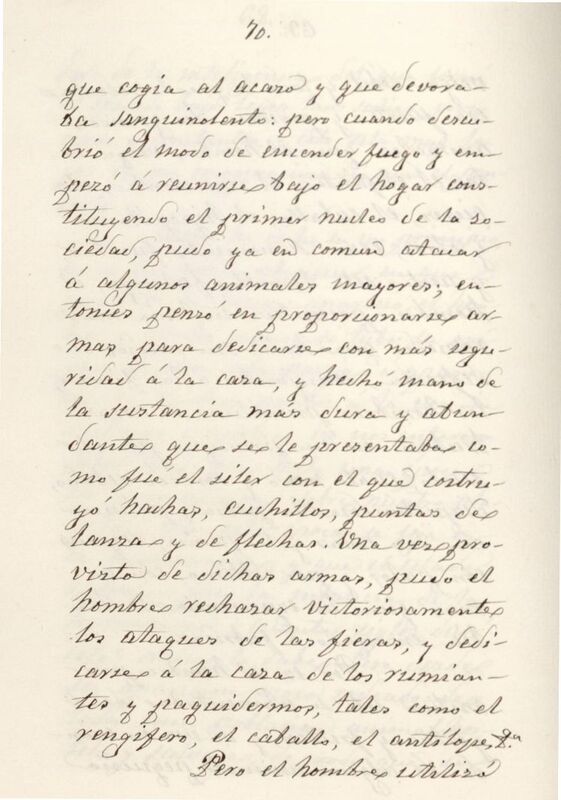 70.
que cogia al acazo y que devora-
ba sanguinolento: pero cuando descu-
brió el modo de encender fuego y em-
pezó á reunirse bajo el hogar cons-
tituyendo el primer nucleo de la so-
ciedad, pudo ya en comun atacar
á algunos animales mayores; en-
tonces pensó en proporcionarse ar-
mas para dedicarse con más segu-
ridad á la caza, y hechó mano de
la sustancia más dura y abun-
dante que se le presentaba co-
mo fué el siler con el que costru-
yó hachas, cuchillos, puntas de
lanza y de flechas. Una vez pro-
visto de dichas armas, pudo el
hombre rechazar victoriosamente
los ataques de las fieras, y dedi-
carse á la caza de los rumian-
tes y paquidermos, tales como el
rengifero, el caballo, el antílope, &.a
Pero el hombre utilizó